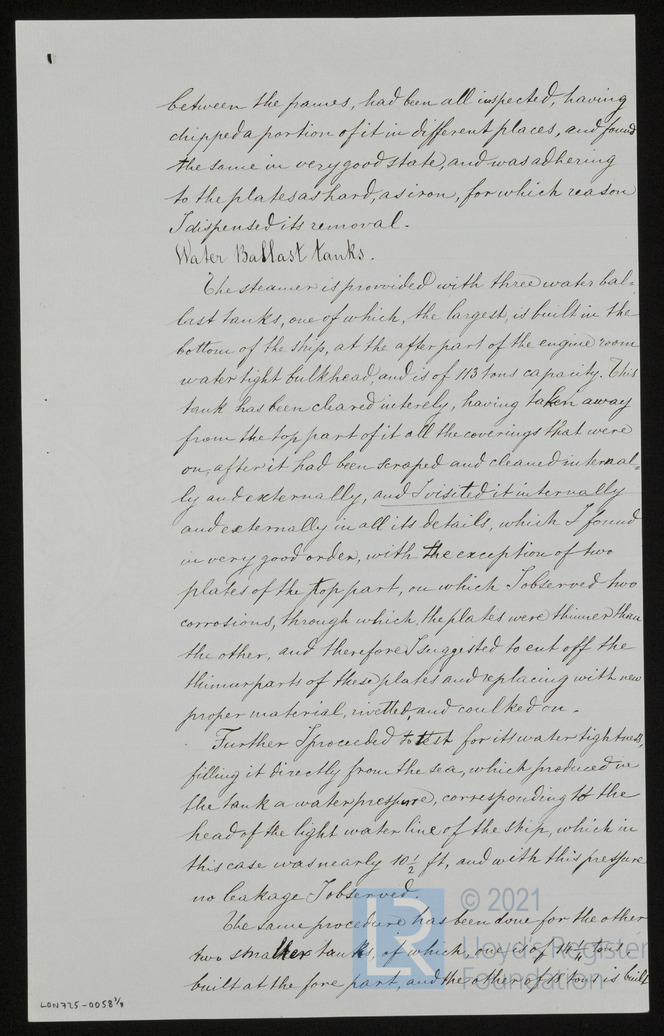 between the frames, had been all inspected, having
chipped a portion of it in different places, and found
the same in very good state, and was adhering
to the plates as hard, as iron, for which reason
I dispensed its removal.
Water Ballast tanks.
The steamer is provvided with three water bal=
last tanks, one of which, the largest, is built in the
bottom of the ship, at the after part of the engine room
water tight bulkhead, and is of 113 tons capacity. This
tank has been cleared interely, having taken away
from the top part of it all the coverings that were
on, after it had been scraped and cleaned internal=
ly and externally, and I visited it internally
and externally in all its details, which I found
in very good order, with the exception of two
plates of the top part, on which I observed two
corrosions, through which, the plates were thinner than
the other, and therefore I suggested to cut off the
thinner parts of these plates and replacing with new
proper material, rivetted, and caulked on.
Further I proceeded to test for its water tightness,
filling it directly from the sea, which produced in
the tank a water pressure, corresponding to the
head of the light water line of the ship, which in
this case was nearly 10 1/2 ft, and with this pressure
no leakage I observed.
The same procedure has been done for the other
two smaller tanks, of which, one is of tons,
built at the fore part, and the other of tons is built
LON725-0058 3/8
© 2021
Lloyd's Register
Foundation
LR